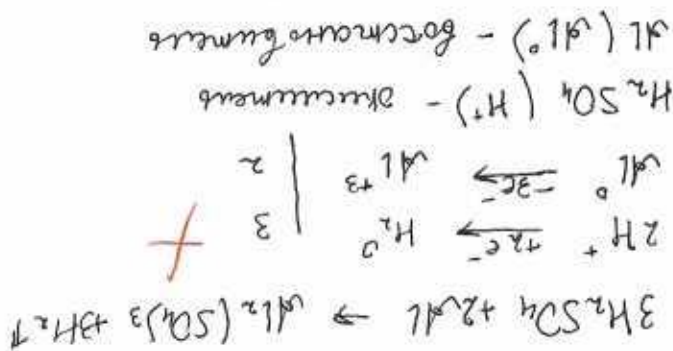 3H₂SO₄ + 2Al → Al₂(SO₄)₃ + 3H₂↑
2H⁺ +2e⁻ → H₂⁰ | 3
Al⁰ -3e⁻ → Al⁺³ | 2
H₂SO₄ (H⁺) - окислитель
Al (Al⁰) - восстановитель